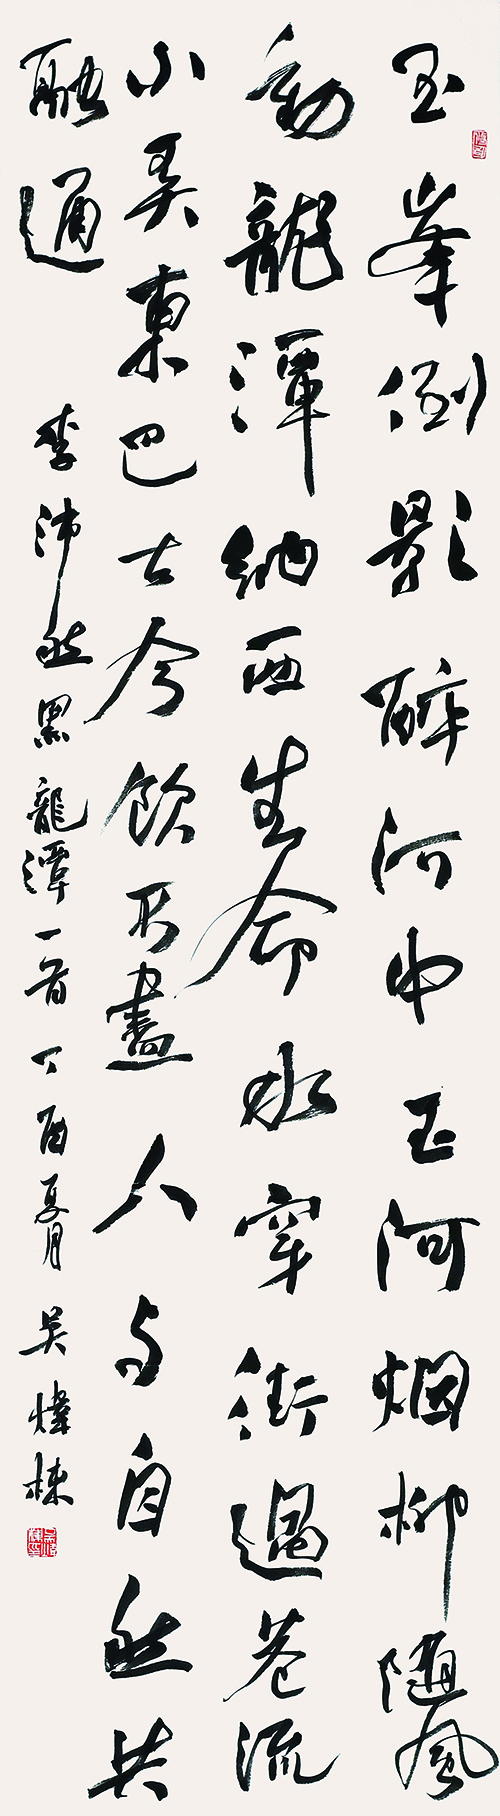 玉峯倒影醉河中玉河烟柳隨風
動龍潭納西生命水穿街過巷流
小弄東巴古今飲不盡人与自然共
融通
李沛然黑龍潭一首丁酉夏月吴煒棟